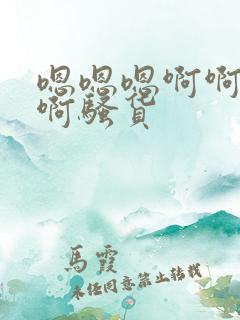 嗯嗯嗯啊啊
啊骚货
馬霞
未经同意禁止转载